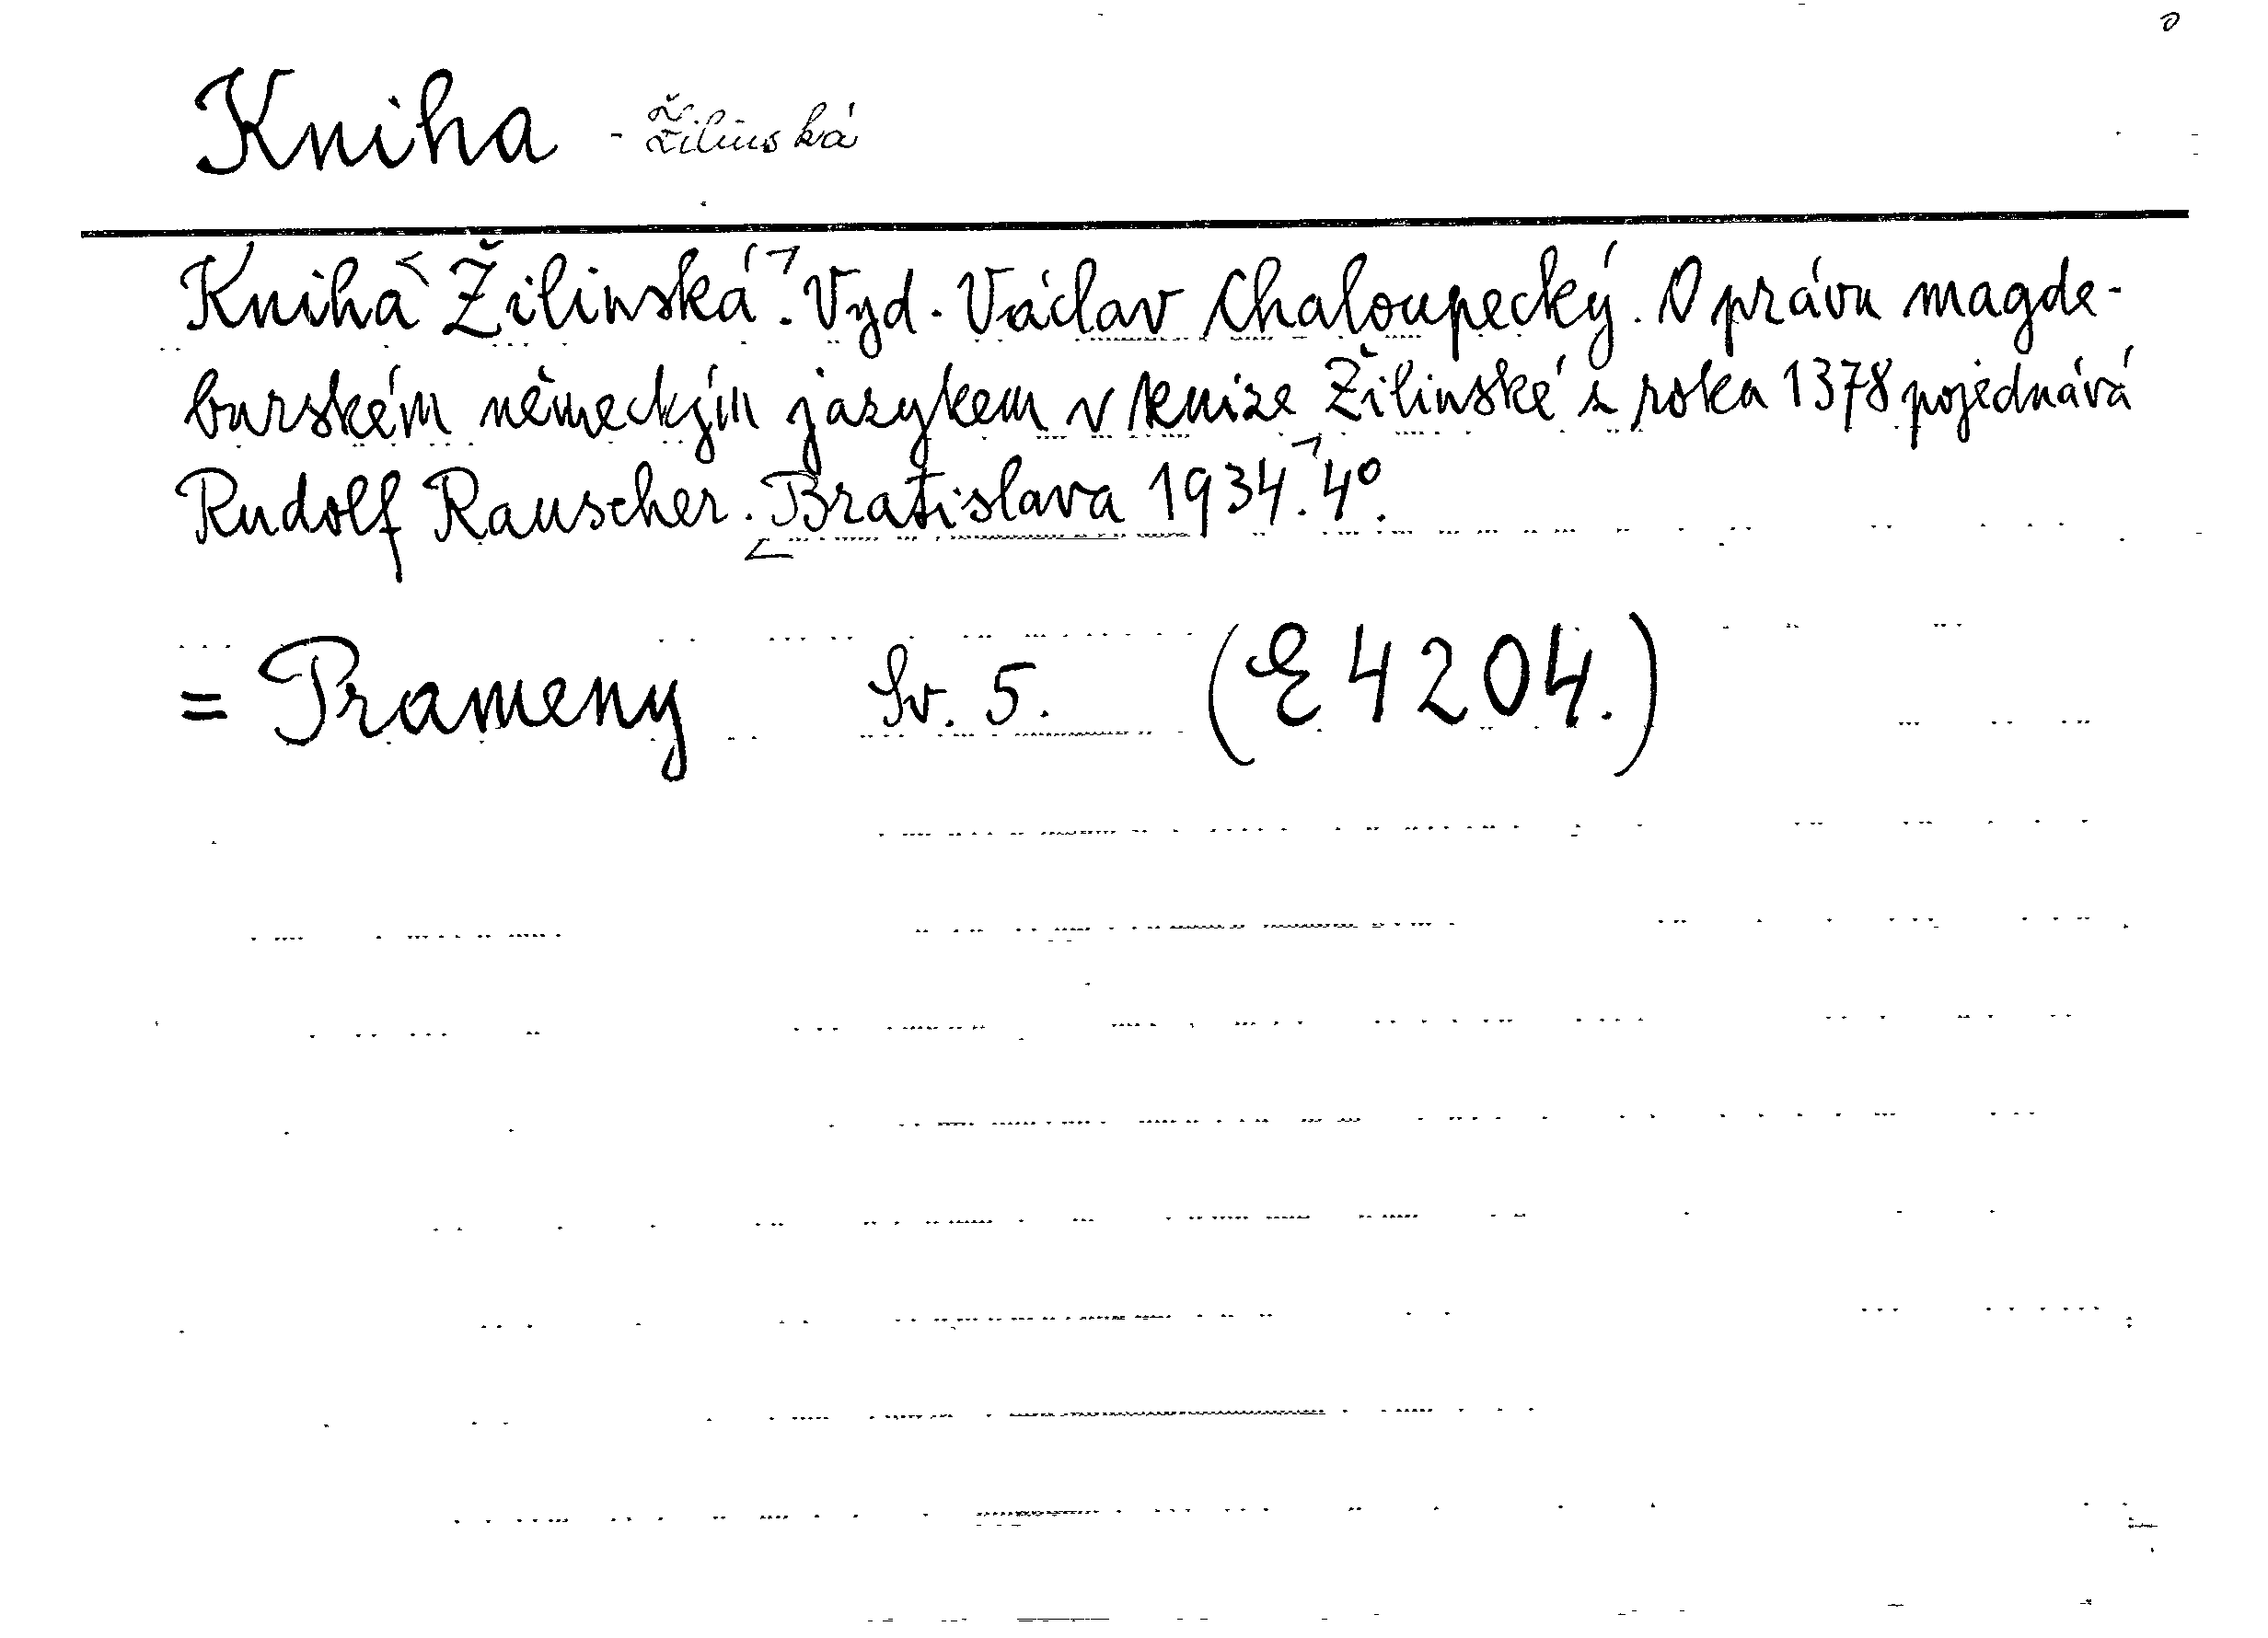 Kniha - Žilinská
Kniha Žilinská. Vyd. Václav Chaloupecký. O právu magde-
burském německým jazykem v knize Žilinské z roka 1378 pojednává
Rudolf Rauscher. Bratislava 1934. 4°.
= Prameny Sv. 5. (E 4204.)